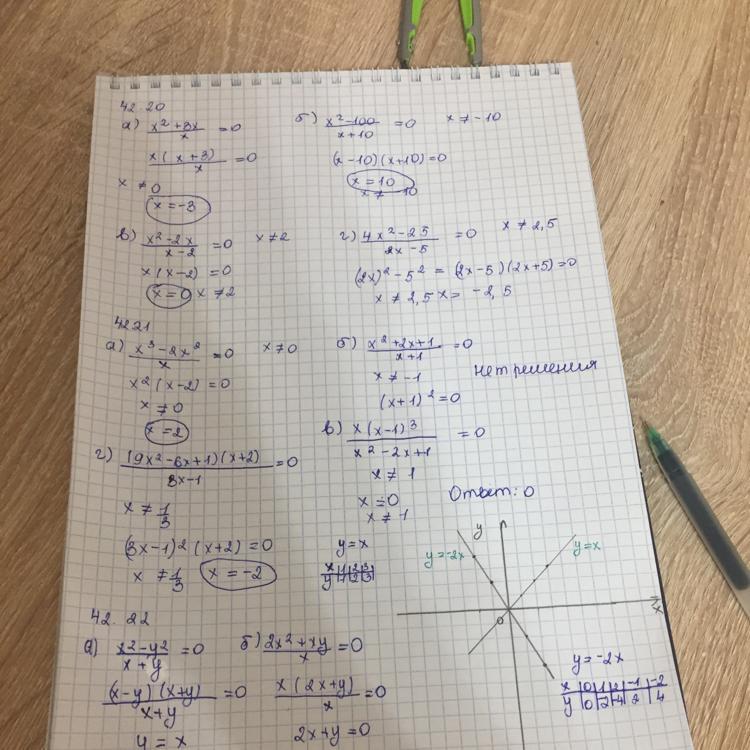 42.20
а) (x² + 3x)/x = 0
x(x+3)/x = 0
x ≠ 0
x = -3
б) (x² - 100)/(x+10) = 0   x ≠ -10
(x-10)(x+10) = 0
x = 10
x ≠ -10
в) (x² - 2x)/(x-2) = 0   x ≠ 2
x(x-2) = 0
x = 0 x ≠ 2
г) (4x² - 25)/(2x-5) = 0   x ≠ 2,5
(2x)² - 5² = (2x-5)(2x+5) = 0
x ≠ 2,5 x = -2,5
42.21
а) (x³ - 2x²)/x = 0   x ≠ 0
x²(x-2) = 0
x ≠ 0
x = 2
б) (x² + 2x + 1)/(x+1) = 0
x ≠ -1
Нет решения
(x+1)² = 0
в) x(x-1)³/(x² - 2x + 1) = 0
x ≠ 1
x = 0
x ≠ 1
Ответ: 0
г) (9x² - 6x + 1)(x+2)/(3x-1) = 0
x ≠ 1/3
(3x-1)²(x+2) = 0
x ≠ 1/3   x = -2
y = x
x 1 2 3
y 1 2 3
42.22
а) (x² - y²)/(x+y) = 0
(x-y)(x+y)/(x+y) = 0
y = x
б) (2x² + xy)/x = 0
x(2x+y)/x = 0
2x+y = 0
y
y = -2x
y = x
x
0
y = -2x
x 0 1 2 -1 -2
y 0 -2 -4 2 4